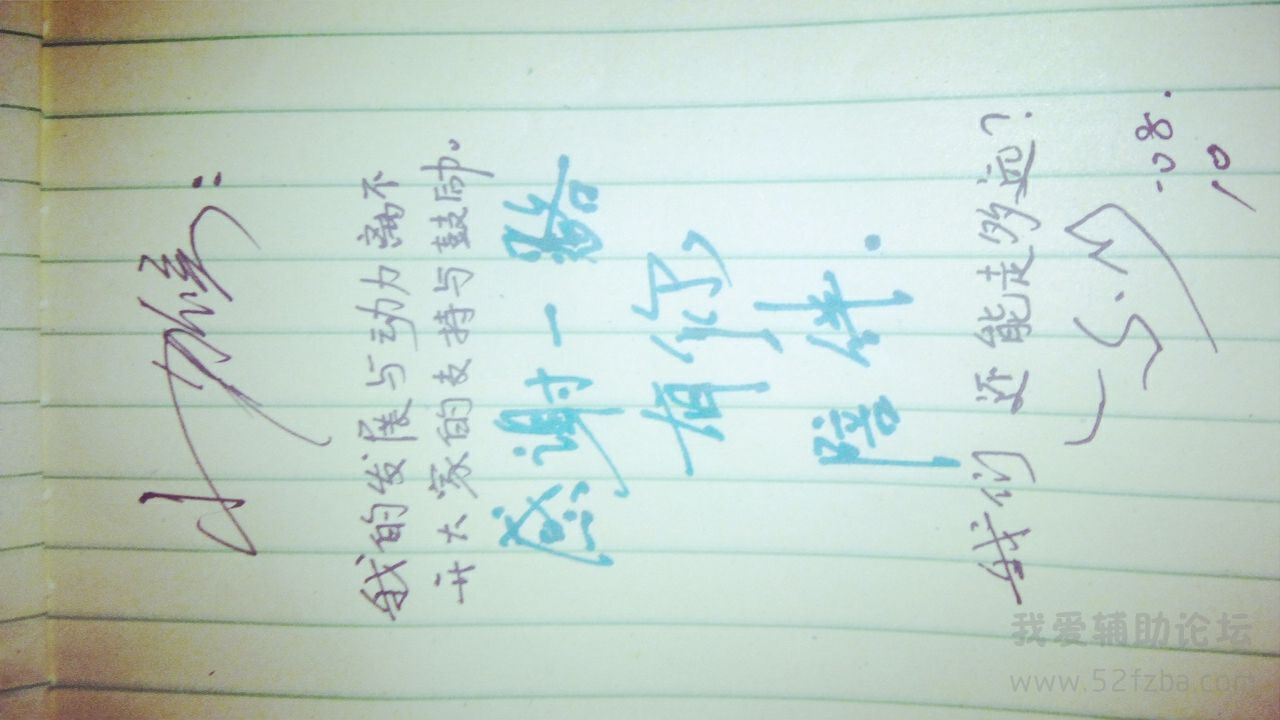 我的发展与动力离不
开大家的支持与鼓励。
感谢一路
有你
陪伴.
我们还能走多远?
08.
10
我爱辅助论坛
www.52fzba.com